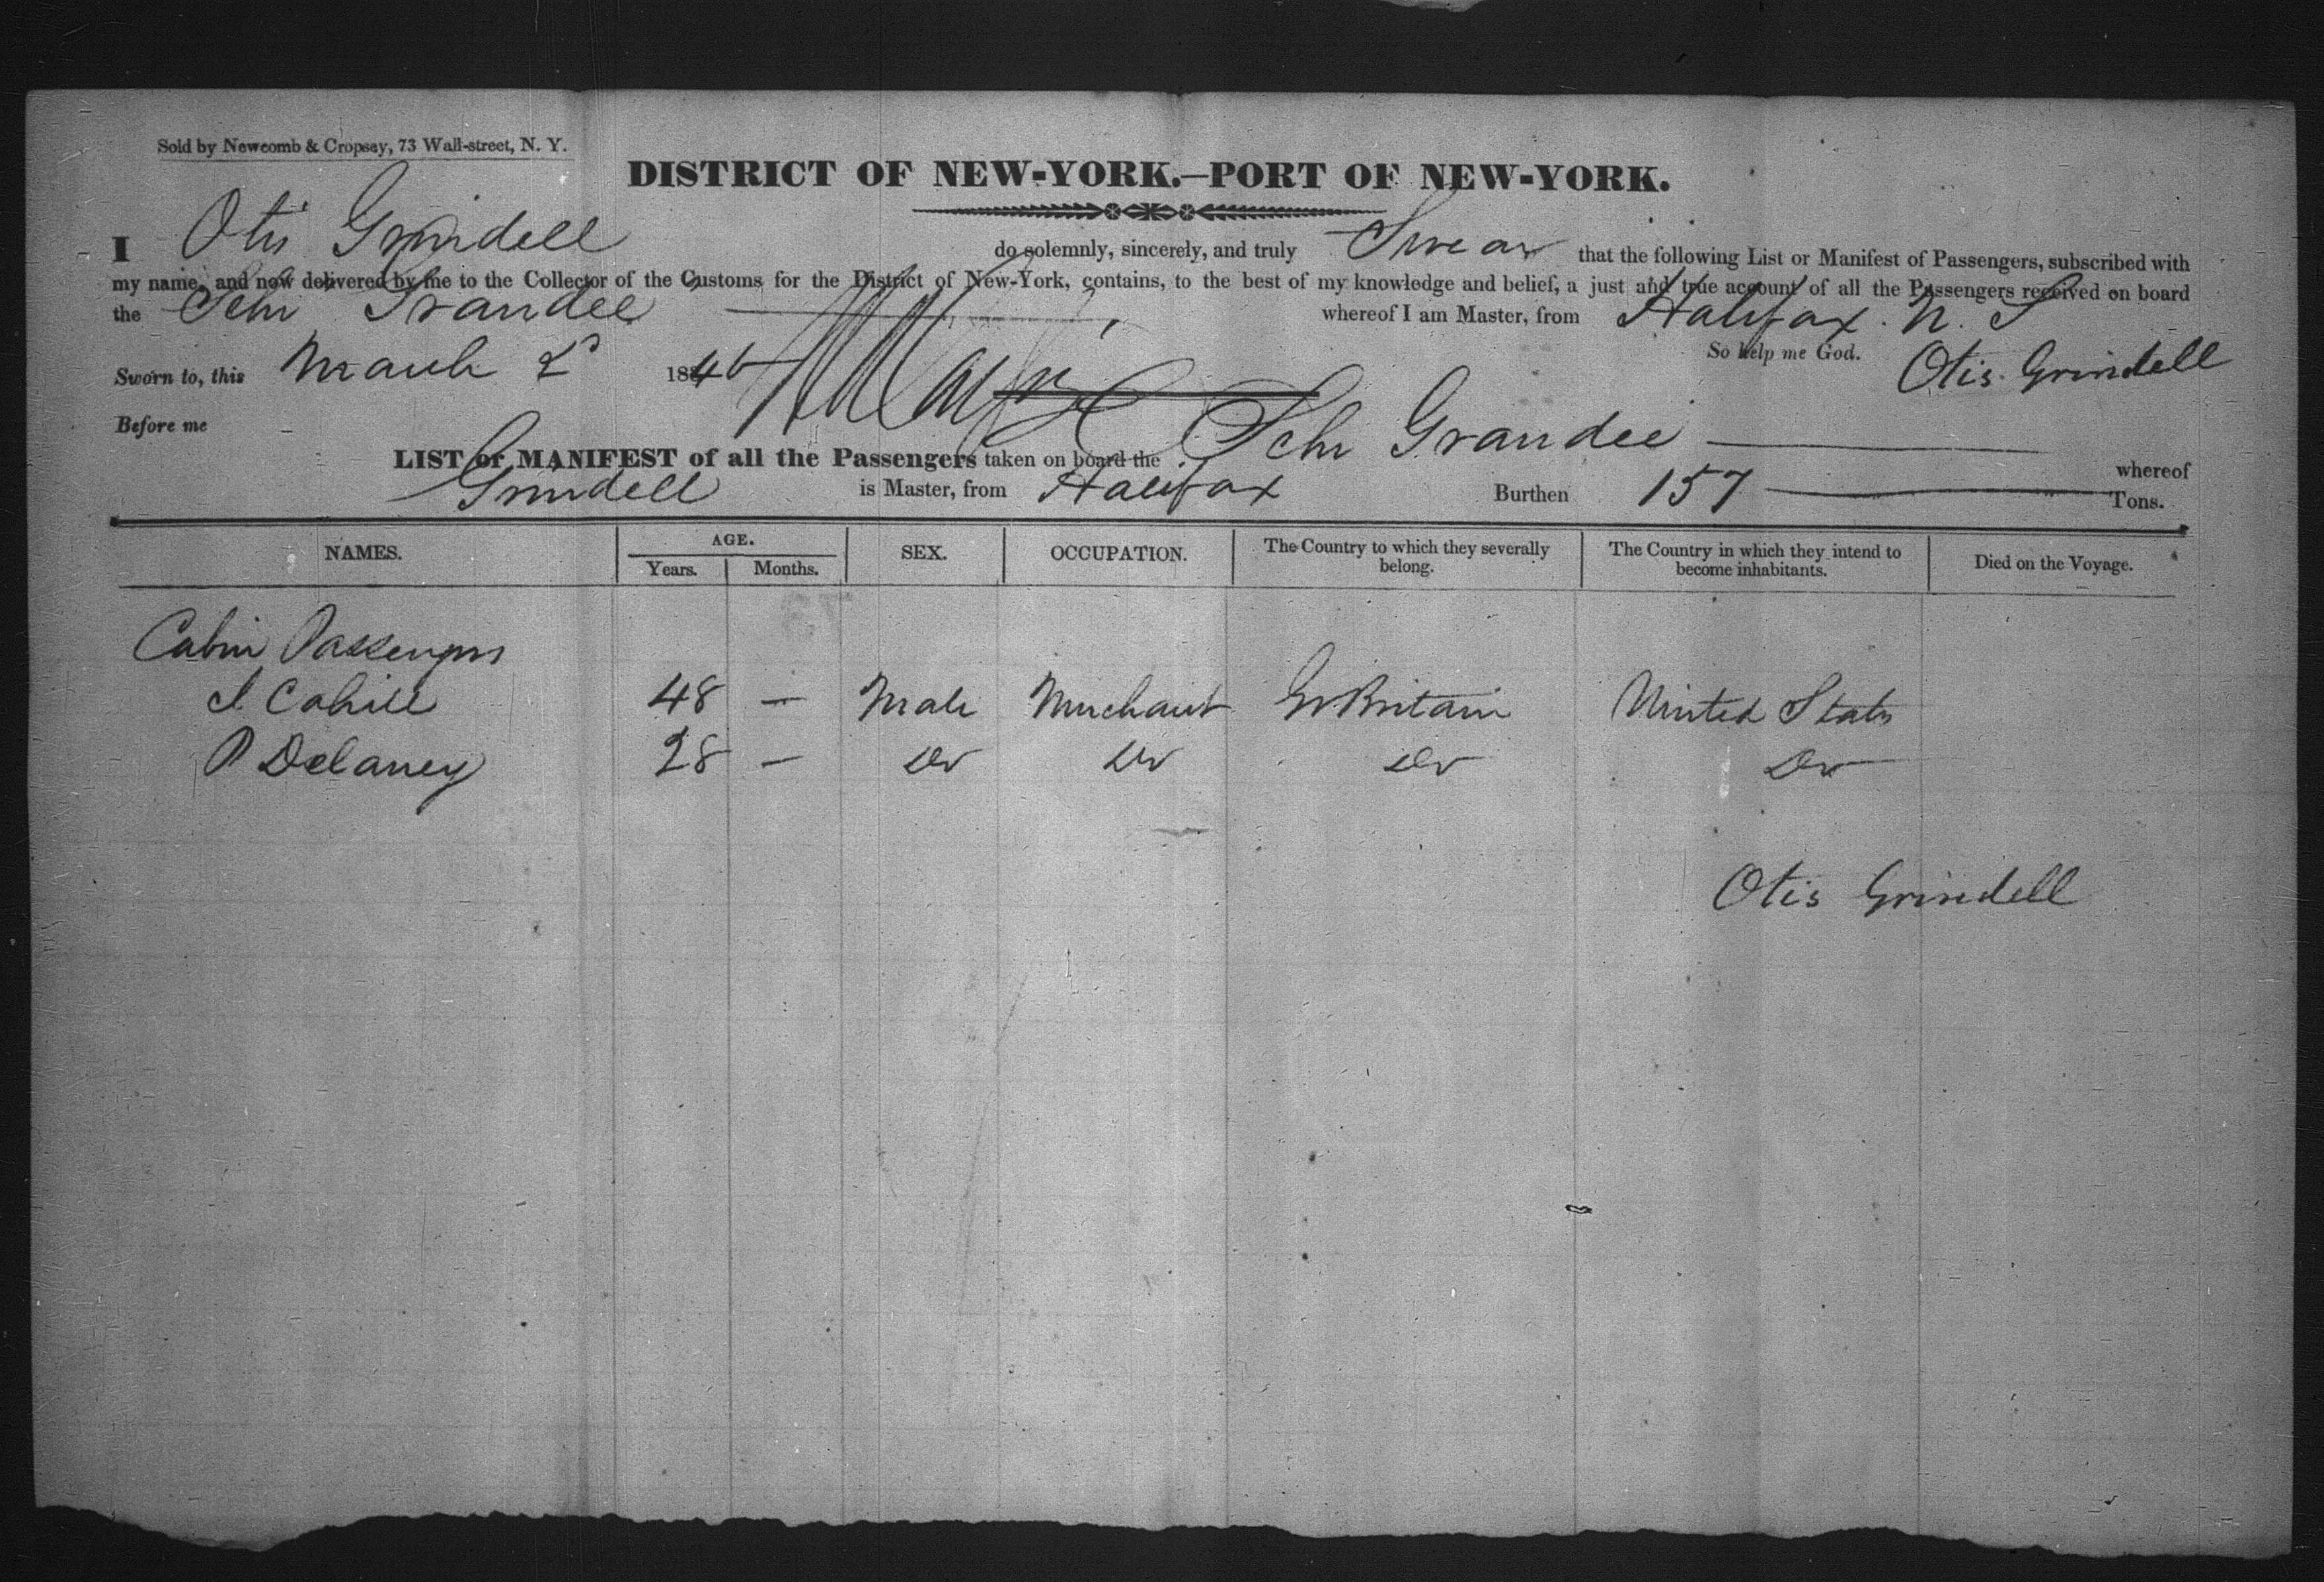 Sold by Newcomb & Cropsey, 73 Wall-street, N. Y.
DISTRICT OF NEW-YORK.—PORT OF NEW-YORK.
I Otis Grindell do solemnly, sincerely, and truly Swear that the following List or Manifest of Passengers, subscribed with
my name, and now delivered by me to the Collector of the Customs for the District of New-York, contains, to the best of my knowledge and belief, a just and true account of all the Passengers received on board
the Schr Grandee whereof I am Master, from Halifax. N. S
So help me God. Otis Grindell
Sworn to, this March 2d 1846
Before me
LIST or MANIFEST of all the Passengers taken on board the Schr Grandee whereof
Grindell is Master, from Halifax Burthen 157 Tons.
NAMES. AGE. SEX. OCCUPATION. The Country to which they severally belong. The Country in which they intend to become inhabitants. Died on the Voyage.
Years. Months.
Cabin Passengers
Cahill 48 — Male Merchant Gr Britain United States
P Delaney 28 — Do Do Do Do
Otis Grindell